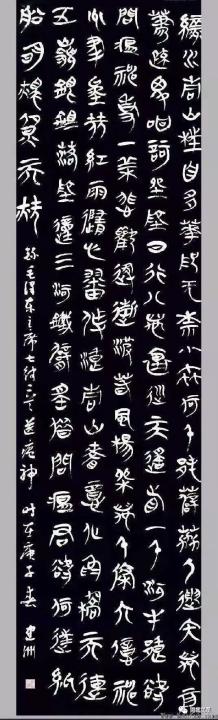 緑水青山枉自多華佗无奈小虫何千村薜荔人遺矢萬戶
蕭疏鬼唱歌坐地日行八萬里巡天遙看一千河牛郎欲
問瘟神事一樣悲歡逐逝波春風楊柳萬千條六億神
州盡舜堯紅雨隨心翻作浪青山著意化爲橋天連
五嶺銀鋤落地動三河鐵臂搖借問瘟君欲何往紙
船明燭照天燒
錄毛澤東主席七律二首送瘟神 時在庚子春 建洲